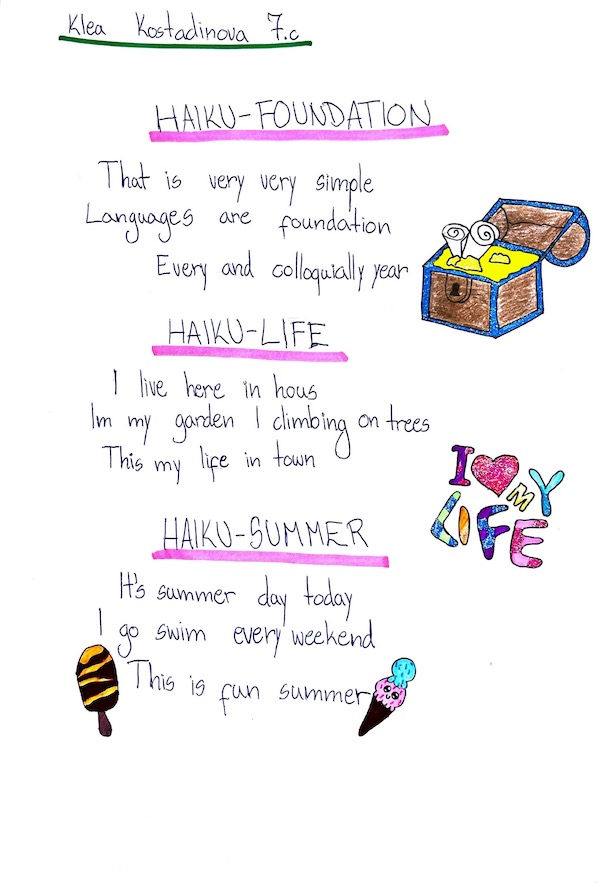 Klea Kostadinova 7.c
HAIKU-FOUNDATION
That is very very simple
Languages are foundation
Every and colloquially year
HAIKU-LIFE
I live here in hous
Im my garden I climbing on trees
This my life in town
I MY
LIFE
HAIKU-SUMMER
It's summer day today
I go swim every weekend
This is fun summer